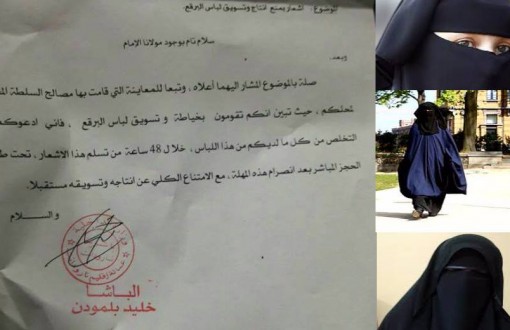 الموضوع : اشعار بمنع انتاج وتسويق لباس البرقع
سلام تام بوجود مولانا الامام
وبعد،
صلة بالموضوع المشار اليهما أعلاه، وتبعا للمعاينة التي قامت بها مصالح السلطة
لمحلكم، حيث تبين انكم تقومون بخياطة و تسويق لباس البرقع ، فاني ادعوكم
التخلص من كل ما لديكم من هذا اللباس، خلال 48 ساعة من تسلم هذا الاشعار، تحت
الحجز المباشر بعد انصرام هذه المهلة، مع الامتناع الكلي عن انتاجه وتسويقه مستقبلا.
و السلام
الباشا
خليد بلمودن